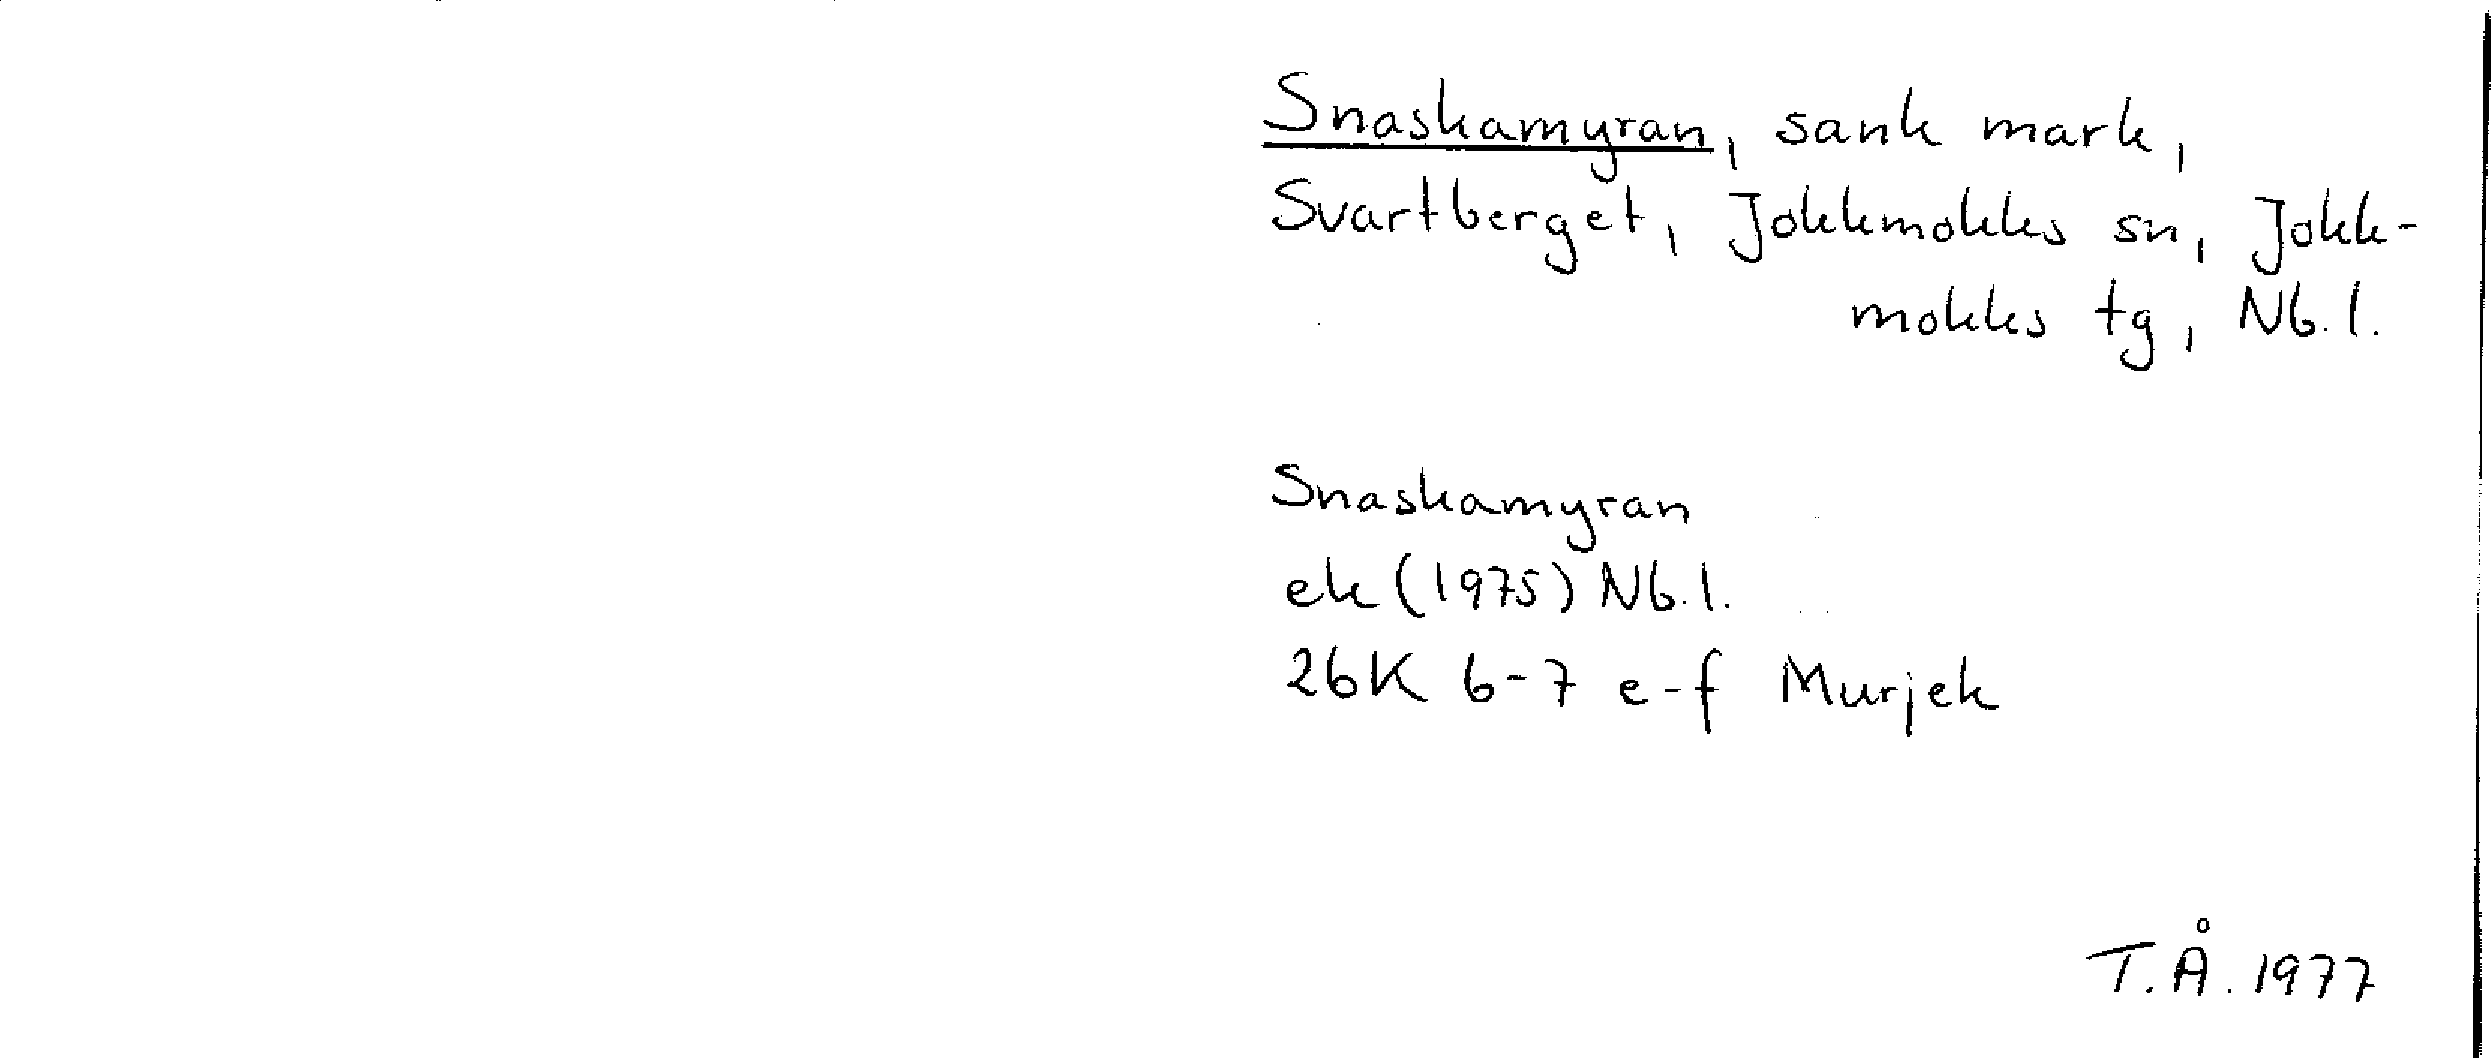 Snaskamyran, sank mark,
Svartberget, Jokkmokks sn, Jokk-
mokks tg, Nb. l.
Snaskamyran
ek (1975) Nb. l.
26K 6-7 e-f Murjek
T.Å. 1977